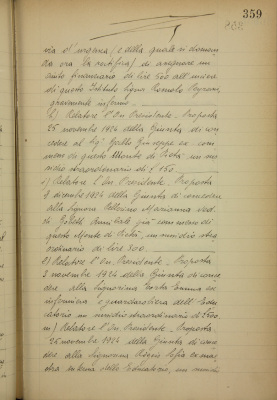 359
via d'urgenza, (e della quale si doman-
da ora la ratifica) di assegnare un
aiuto finanziario di lire 500 all'usciere
di questo Istituto Signor Romolo
gravemente infermo.
Relatore l'On. Presidente. Proposta
25 novembre 1924 della Giunta di con-
cedere al Sig. Gallo Giuseppe ex com-
messo di questo Monte di Pietà un sus-
sidio straordinario di £ 150.
Relatore l'On. Presidente. Proposta
9 dicembre 1924 della Giunta di concedere
alla Signora Pellerino Marianna ved.
di già commesso di
questo Monte di Pietà, un sussidio stra-
ordinario di lire 300.
Relatore l'On. Presidente. Proposta
2 novembre 1924 della Giunta di conce-
dere alla Signorina Emma ex
infermiera e guardarobiera dell'Edu-
catorio un sussidio straordinario di £ 500.
m) Relatore l'On. Presidente. Proposta
25 novembre 1924 della Giunta di conce-
dere alla Signorina Sofia ex mae-
stra interna dello Educatorio, un sussidio